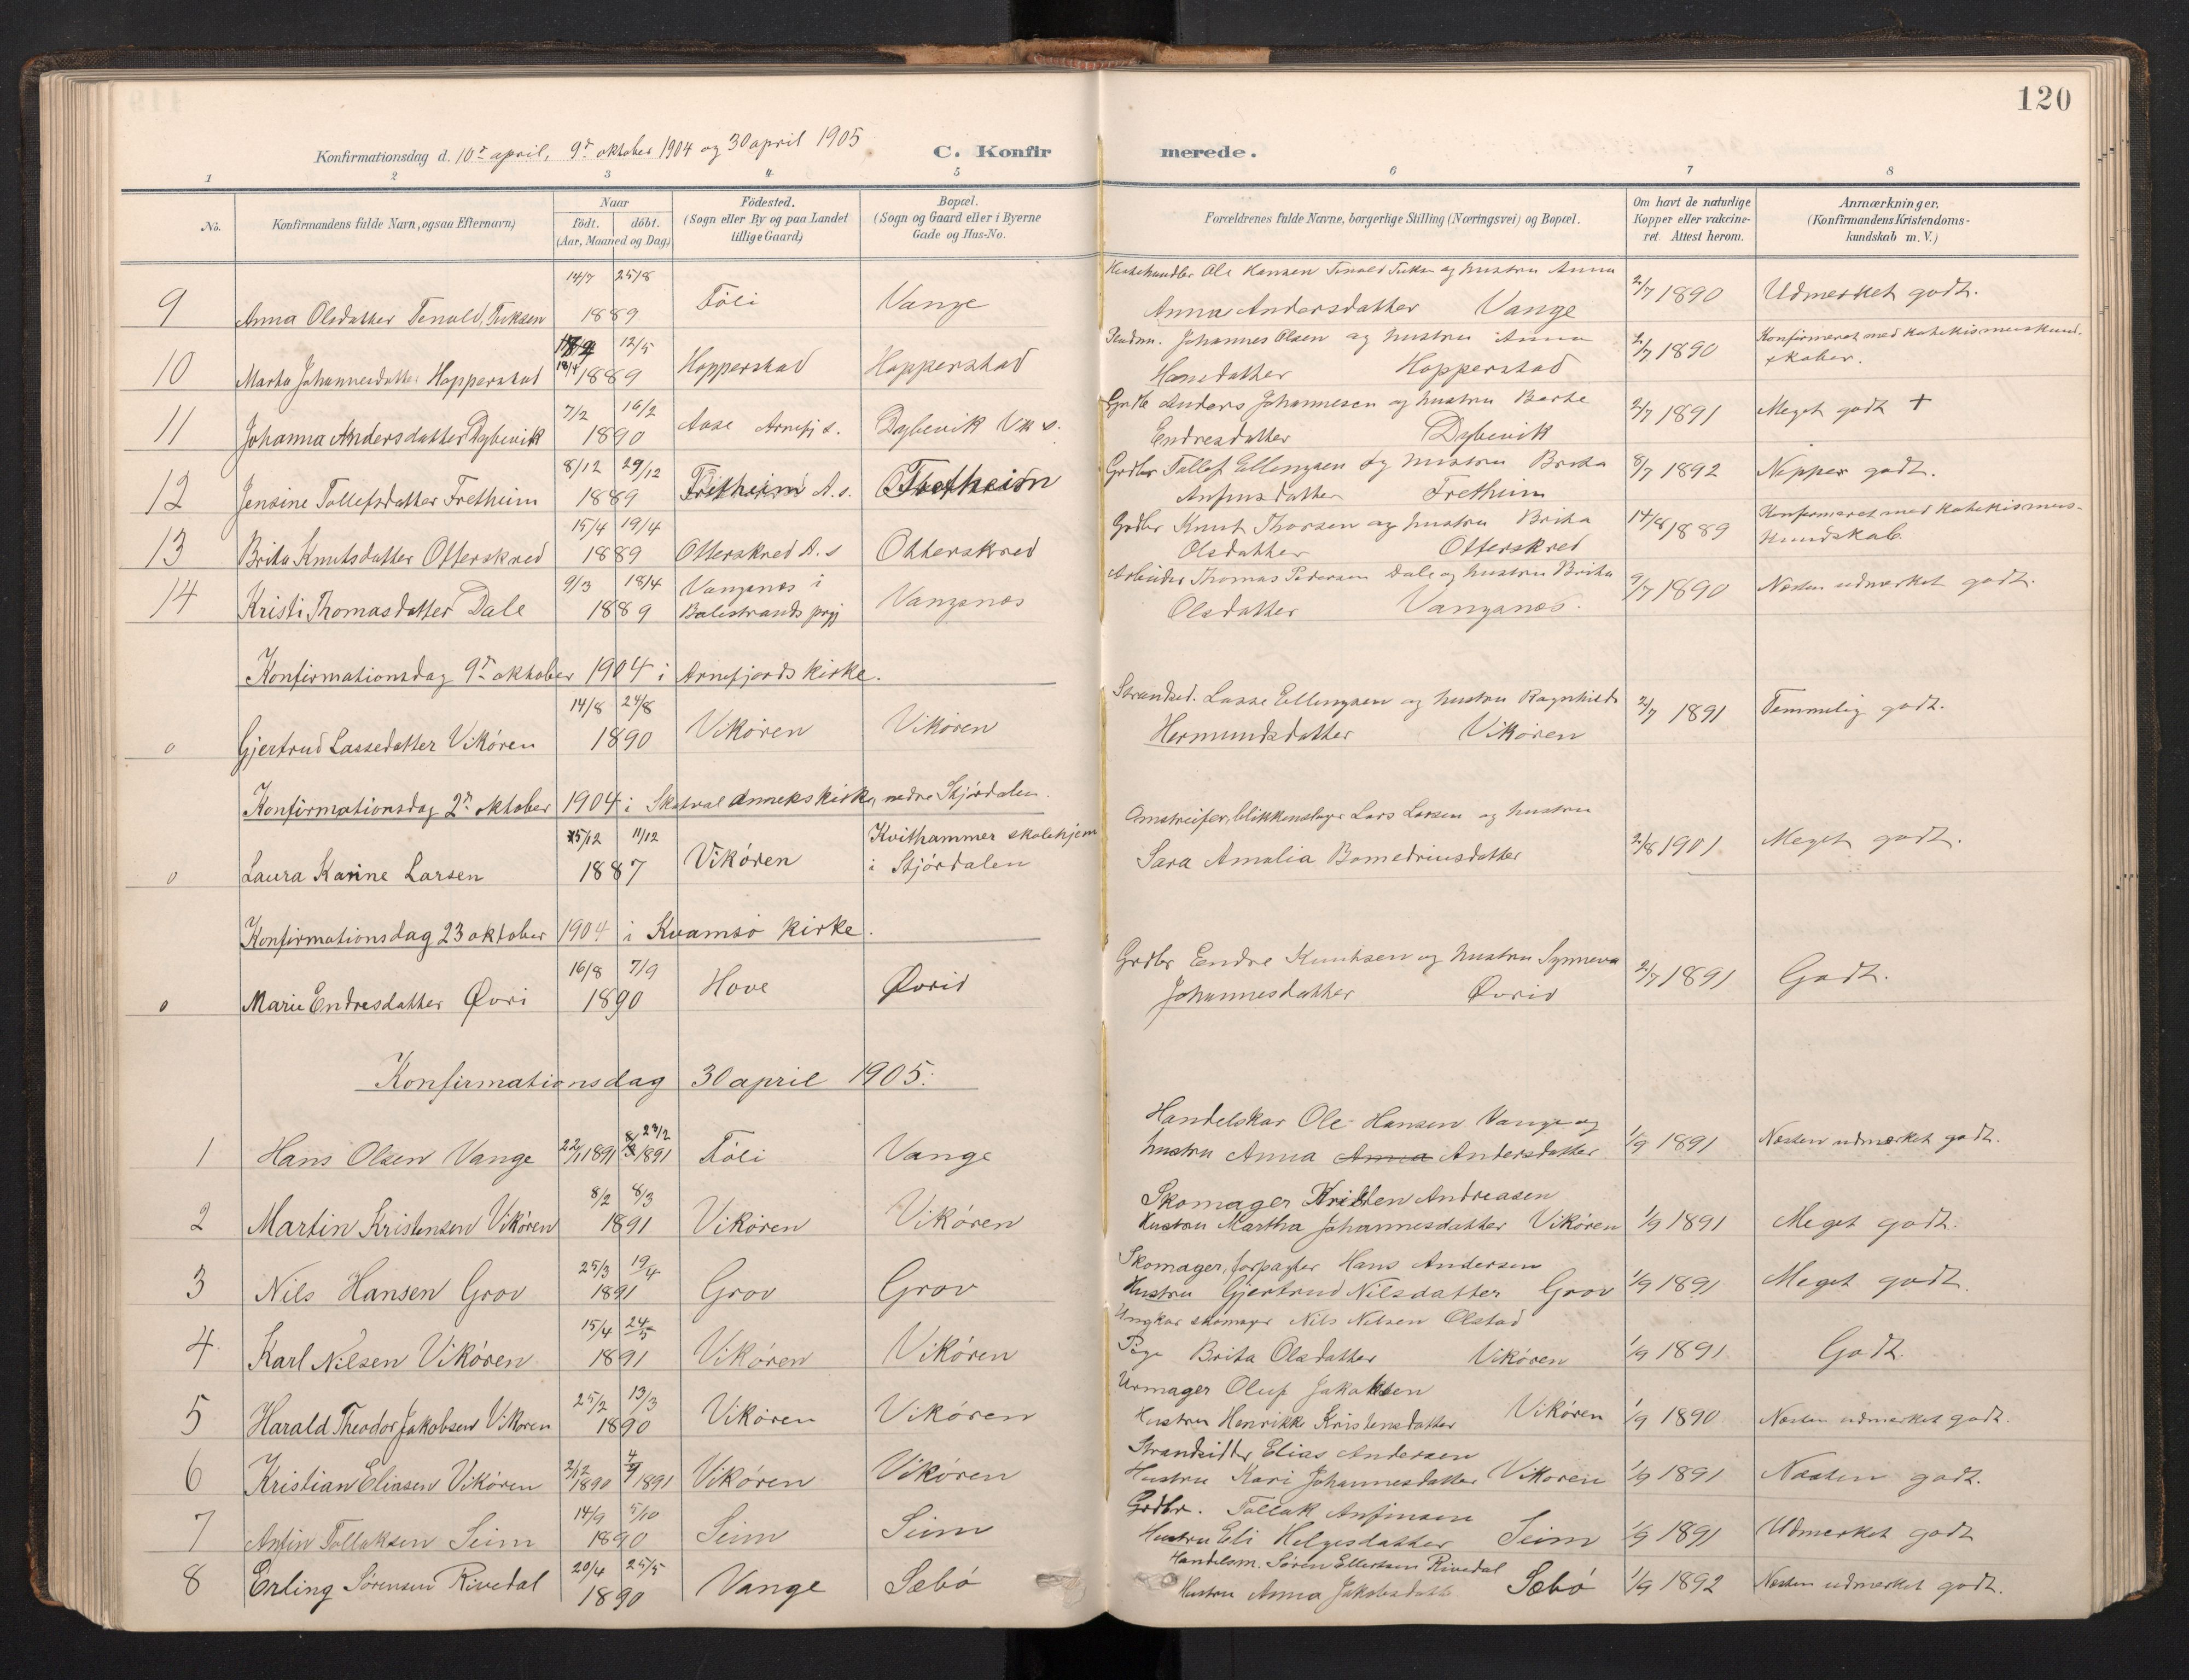 120
Konfirmationsdag d. 10de april, 9de oktober 1904 og 30 april 1905
C. Konfirmerede.
1 2 3 4 5 6 7 8
No.
Konfirmandens fulde Navn, ogsaa Efternavn)
Naar
födt. döbt.
(Aar, Maaned og Dag)
Födested.
(Sogn eller By og paa Landet
tillige Gaard)
Bopæl.
(Sogn og Gaard eller i Byerne
Gade og Hus-No.
Forældrenes fulde Navne, borgerlige Stilling (Næringsvei) og Bopæl.
Om havt de naturlige
Kopper eller vakcine-
ret. Attest herom.
Anmærkninger.
(Konfirmandens Kristendoms-
kundskab m. V.)
14/7 25/8 Hansen Tenold og hustru Anna
9 Anna Olsdatter Tenold, 1889 Föli Vange Anna Andersdatter Vange 2/7 1890 Udmerket godt.
12/5 Johannes Olsen og hustru Anna Konfirmeret med katekismuskund-
10 Marta Johannesdatter Hopperstad 18/4 1889 Hopperstad Hopperstad Hansdatter Hopperstad 2/7 1890 skaber.
7/2 16/2 Grdbr Anders Johannesen og hustru Berte
11 Johanna Andersdatter Dybevik 1890 Aase Arnefj s. Dybevik Vik s. Endresdatter Dybevik 2/7 1891 Meget godt +
8/12 29/12 Grdbr Tollef Ellingsen og hustru Brita
12 Jensine Tollefsdatter Fretheim 1889 Fretheim A. s. Fretheim Anfinsdatter Fretheim 8/7 1892 Neppe godt.
15/4 19/4 Grdbr Knut Thorsen og hustru Brita Konfirmeret med katekismus-
13 Brita Knutsdatter Otterskred 1889 Otterskred A. s Otterskred Olsdatter Otterskred 14/8 1889 kundskab.
9/3 18/4 Vangsnes i Arbeider Thomas Pedersen Dale og hustru Brita
14 Kristi Thomasdatter Dale 1889 Balestrands prgj Vangsnes Olsdatter Vangsnes. 9/7 1890 Næsten udmerket godt.
Konfirmationsdag 9de oktober 1904 i Arnefjords kirke.
14/8 24/8 Strandsid. Lasse Ellingsen og hustru Ragnhild
0 Gjertrud Lassedatter Vikören 1890 Vikören Vikören Hermundsdatter Vikören 2/7 1891 Temmelig godt.
Konfirmationsdag 2de oktober 1904 i Skatval annekskirke, nedre Stjördalen.
5/12 11/12 Kvithammer skolehjem Omstreifer, blikkenslager Lars Larsen og hustru
0 Laura Karine Larsen 1887 Vikören i Stjördalen Sara Amalia Bomedriusdatter 2/8 1901 Meget godt.
Konfirmationsdag 23 oktober 1904 i Kvamsö kirke.
16/8 7/9 Grdbr Endre Knutsen og hustru Synneva
0 Marie Endresdatter Øvri 1890 Hove Øvrid Johannesdatter Øvrid 2/7 1891 Godt.
Konfirmationsdag 30 april 1905.
23/2 Handelskar Ole Hansen Vange og
1 Hans Olsen Vange 22/1 1891 1891 Föli Vange hustru Anna Anna Andersdatter 1/9 1891 Næsten udmerket godt.
8/2 8/3 Skomager Kristen Andreasen
2 Martin Kristensen Vikören 1891 Vikören Vikören Hustru Martha Johannesdatter Vikören 1/9 1891 Meget godt.
25/3 19/4 Skomager, forpagter Hans Andersen
3 Nils Hansen Grov 1891 Grov Grov Hustru Gjertrud Nilsdatter Grov 1/9 1891 Meget godt.
15/4 24/5 Ungkar skomager Nils Nilsen Olstad
4 Karl Nilsen Vikören 1891 Vikören Vikören Pige Brita Olsdatter Vikören 1/9 1891 Godt.
25/2 13/3 Urmager Oluf Jakobsen
5 Harald Theodor Jakobsen Vikören 1890 Vikören Vikören Hustru Henrikke Kristensdatter Vikören 1/9 1890 Næsten udmerket godt.
Strandsidder Elias Andersen
6 Kristian Eliasen Vikören 2/12 1890 1891 Vikören Vikören Hustru Kari Johannesdatter Vikören 1/9 1891 Næsten godt.
14/9 5/10 Grdbr. Tollak Anfinsen
7 Anfin Tollaksen Seim 1890 Seim Seim Hustru Eli Helgesdatter Seim 1/9 1891 Udmerket godt
20/4 25/5 Handelsm. Sören Ellertsen Rivedal
8 Erling Sörensen Rivedal 1890 Vange Sæbö Hustru Anna Jakobsdatter Sæbö 1/9 1892 Næsten udmerket godt.